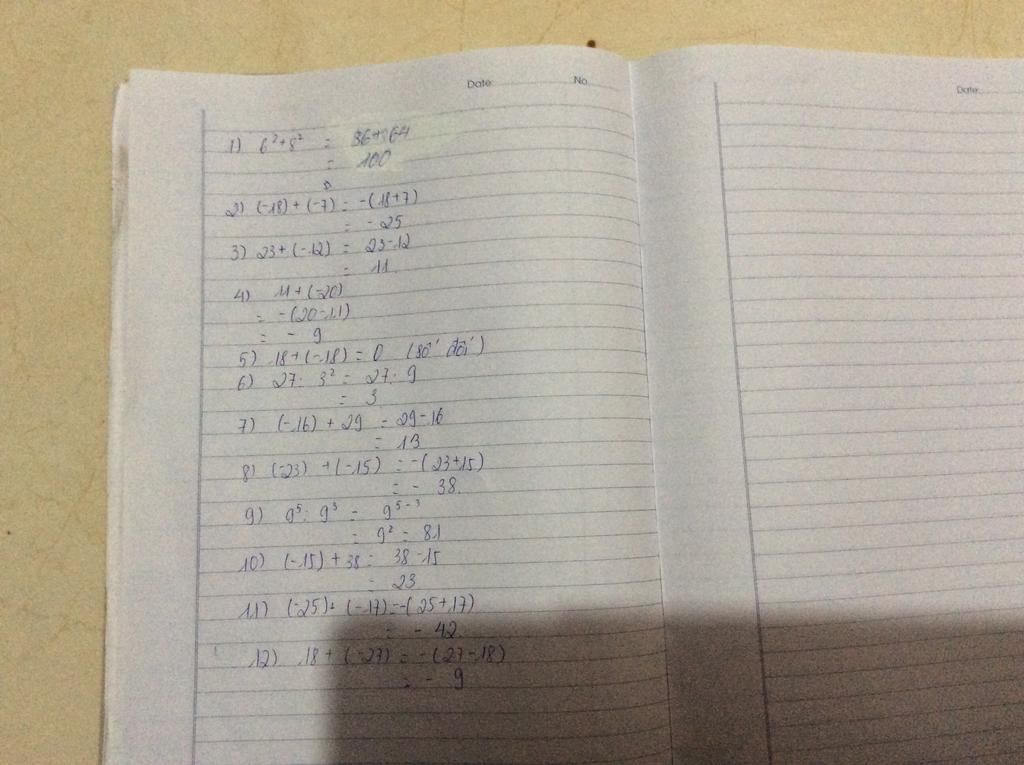 Date No.
Date
1) 6² + 8² = 36 + 64
= 100
2) (-18) + (-7) = -(18+7)
= -25
3) 23 + (-12) = 23-12
= 11
4) 11 + (-20)
= -(20-11)
= - 9
5) 18 + (-18) = 0 (số đối)
6) 27 : 3² = 27 : 9
= 3
7) (-16) + 29 = 29-16
= 13
8) (-23) + (-15) = -(23+15)
= - 38.
9) 9⁵ : 9³ = 9⁵⁻³
= 9² = 81
10) (-15) + 38 = 38-15
= 23
11) (-25) + (-17) = -(25+17)
= - 42
12) 18 + (-27) = -(27-18)
= - 9